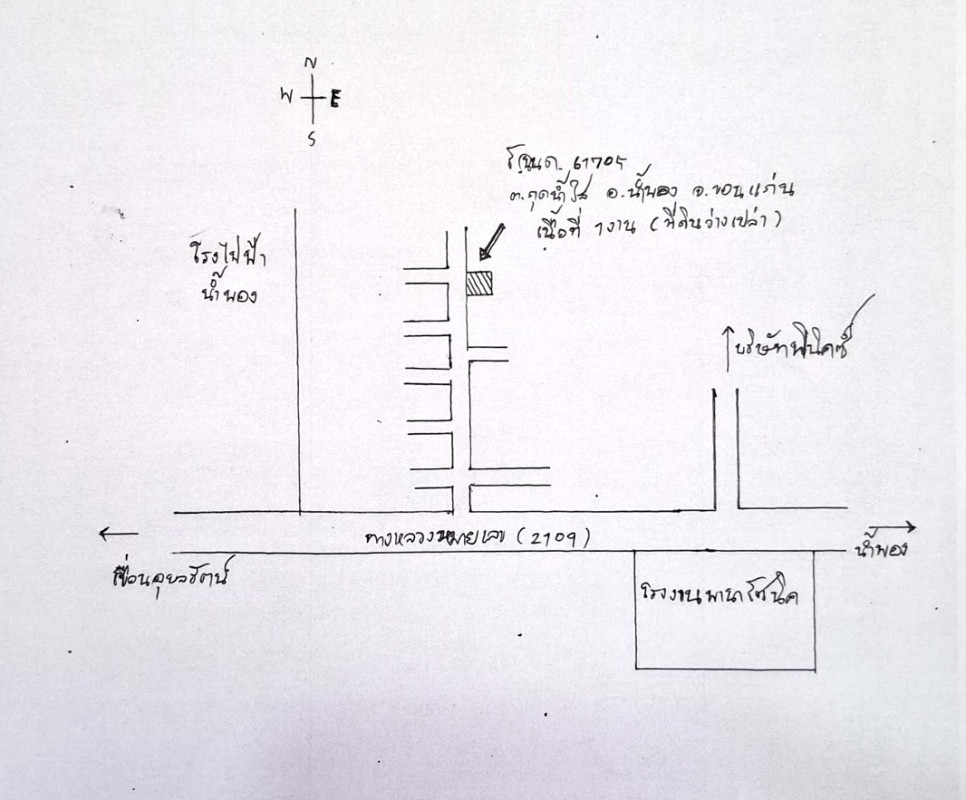 N
W E
S
โฉนด. 61705
ต.กุดน้ำใส อ.น้ำพอง จ.ขอนแก่น
เนื้อที่ 1งาน (ที่ดินว่างเปล่า)
โรงไฟฟ้า
น้ำพอง
บริษัทฟินิคซ์
ทางหลวงหมายเลข (2109)
น้ำพอง
เขื่อนอุบลรัตน์
โรงงานพานาโซนิค